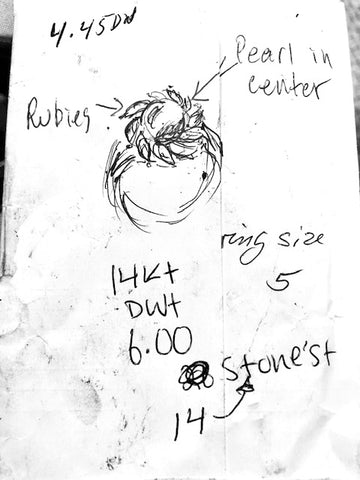 4.45DW
Pearl in
center
Rubies
ring size
5
14Kt
DWt
6.00
Stone'st
14